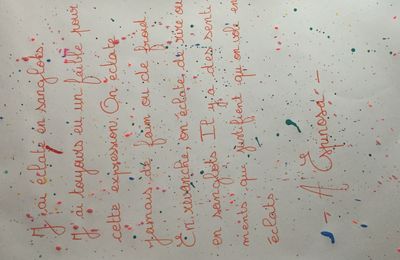 J'ai éclaté en sanglots.
J'ai toujours eu un faible pour
cette expression. On éclate
jamais de faim ou de froid.
En revanche, on éclate de rire ou
en sanglots. Il y a des senti
ments qui justifient qu'on vole en
éclats.
- A. Espinosa -